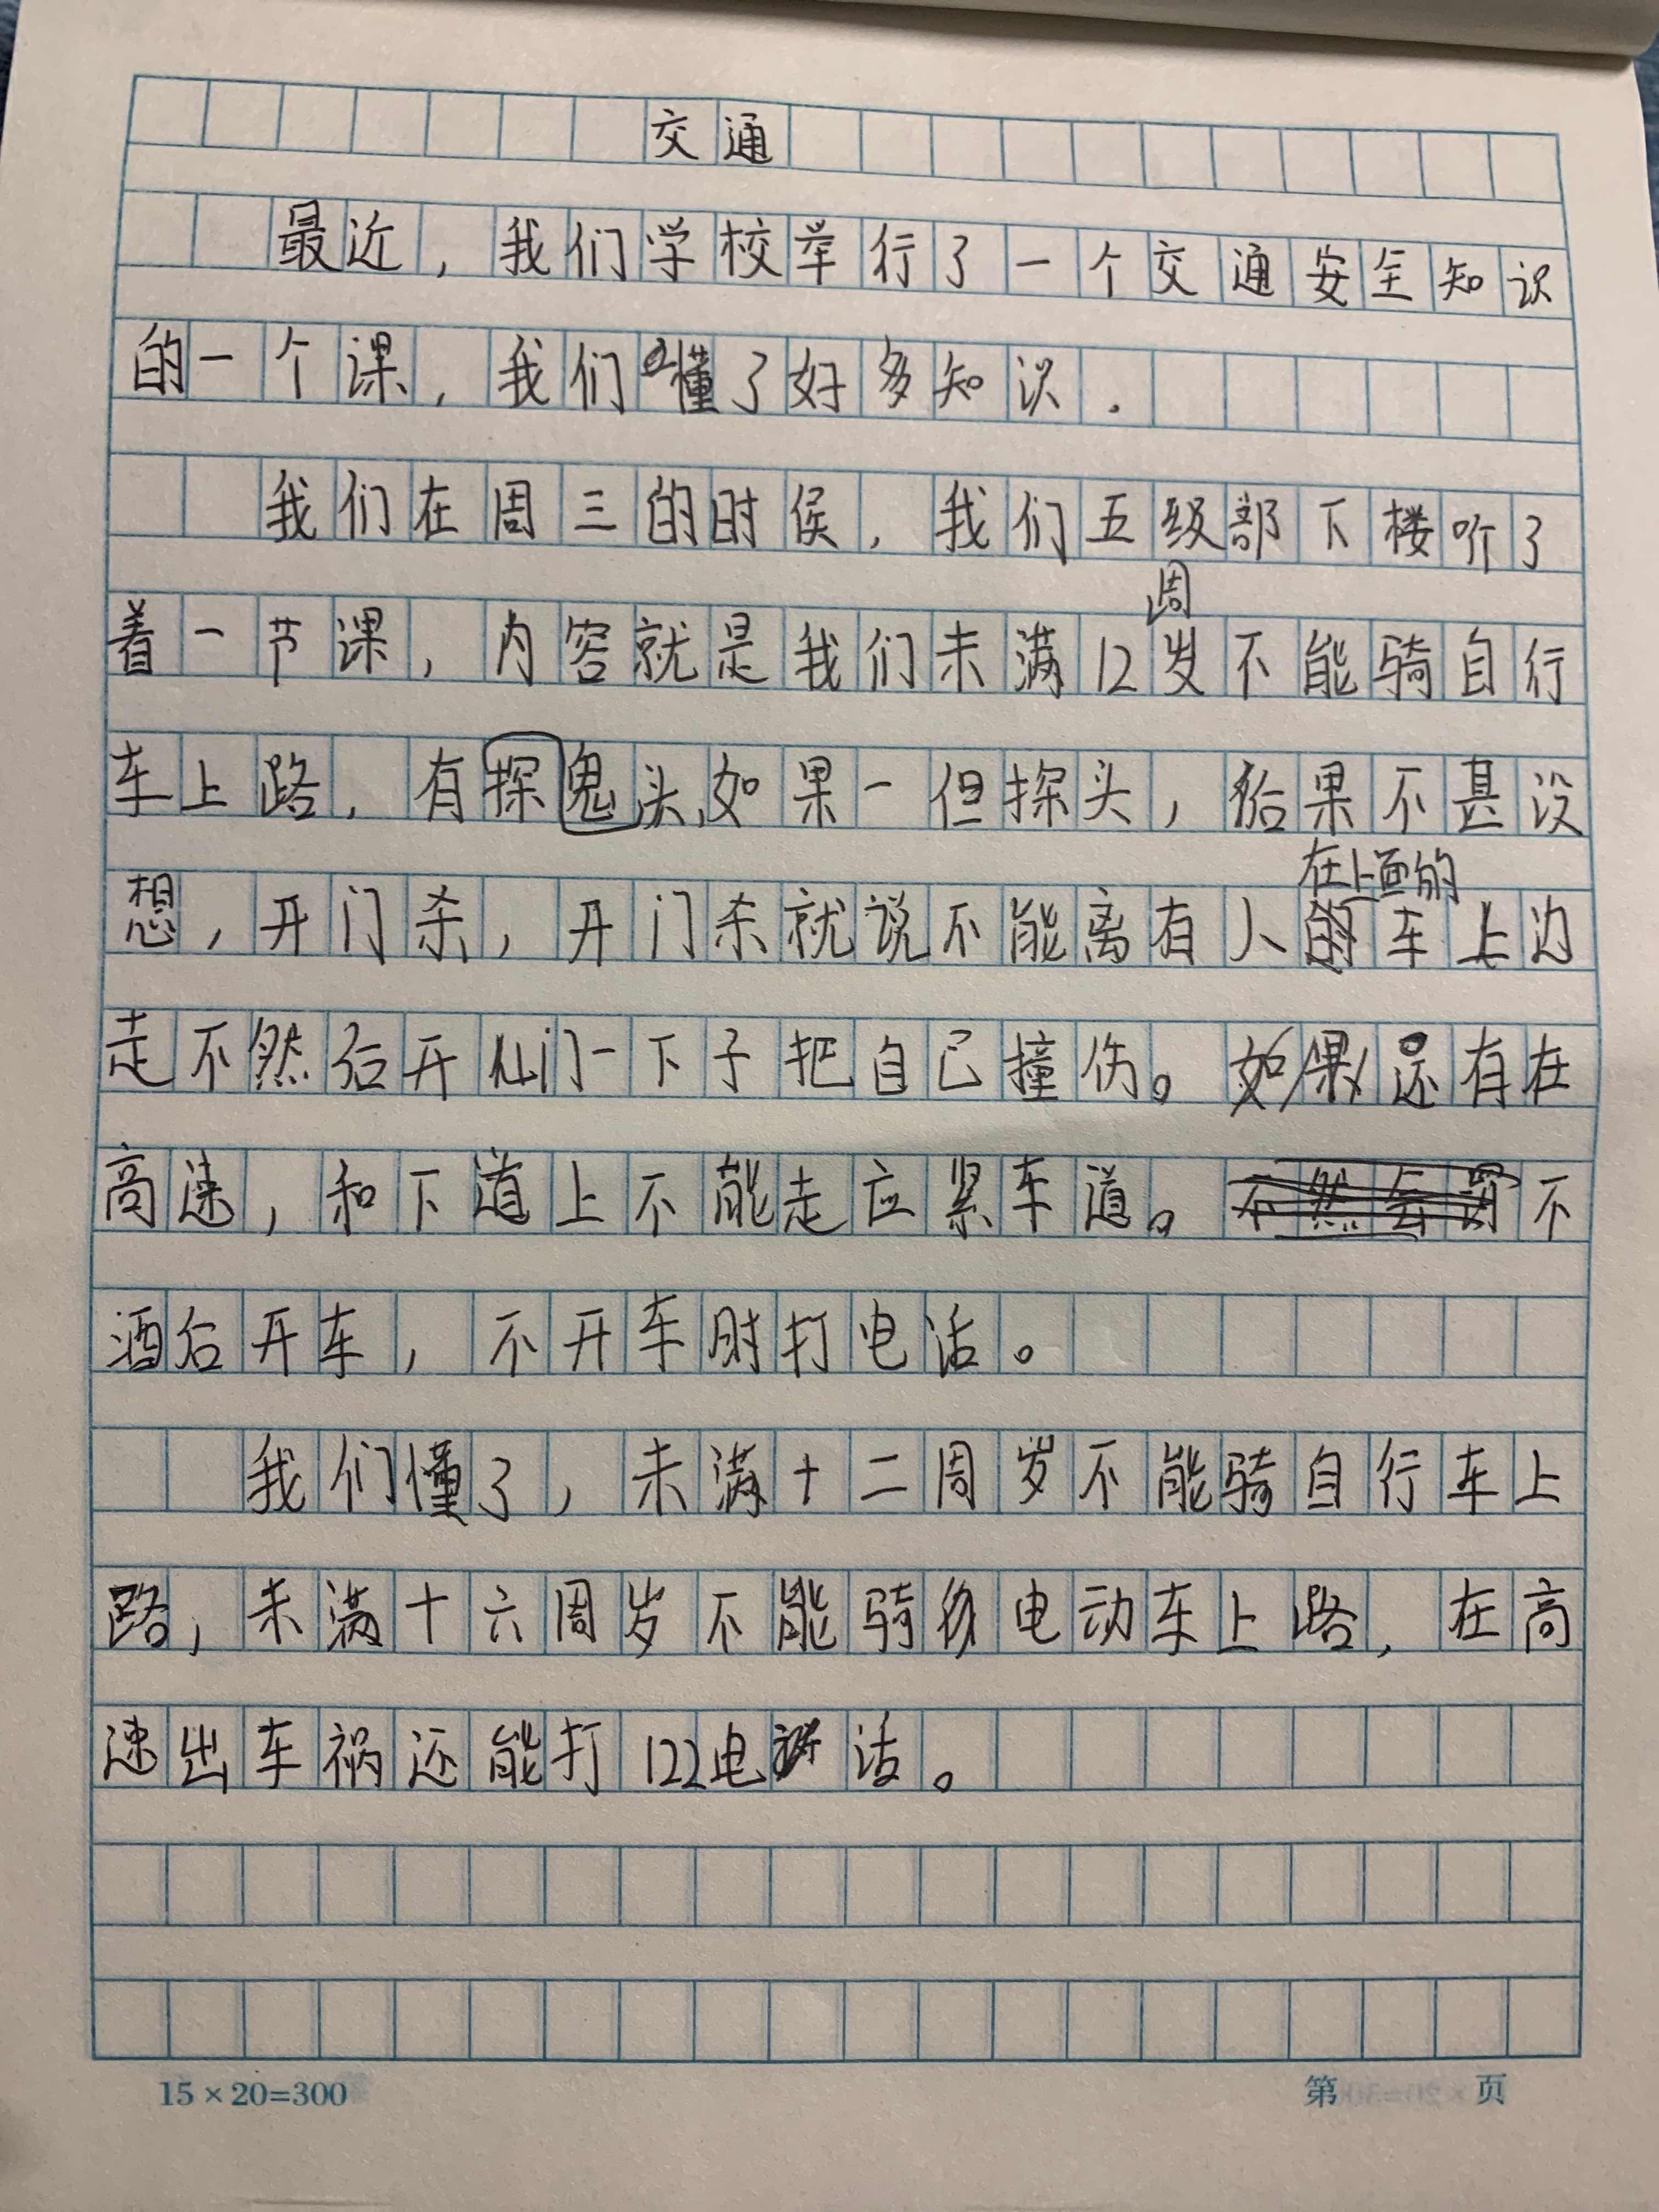 交通
最近，我们学校举行了一个交通安全知识
的一个课，我们懂了好多知识.
我们在周三的时侯，我们五级部下楼听了
着一节课，内容就是我们未满12周岁不能骑自行
车上路，有鬼探头，如果一但探头，后果不甚没
想，开门杀，开门杀就说不能离有人在上面的车上边
走不然后开门一下子把自己撞伤。还有在
高速，和下道上不能走应紧车道。不
酒后开车，不开车时打电话。
我们懂了，未满十二周岁不能骑自行车上
路，未满十六周岁不能骑电动车上路，在高
速出车祸还能打122电话。
15×20=300
第 页